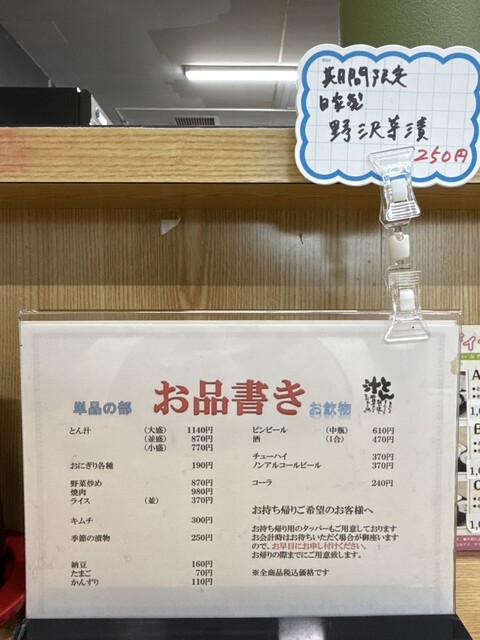 期間限定
自家製
野沢菜漬
250円
単品の部
お品書き
お飲物
とん汁
とん汁 (大盛) 1140円
(並盛) 870円
(小盛) 770円
おにぎり各種 190円
野菜炒め 870円
焼肉 980円
ライス (並) 370円
キムチ 300円
季節の漬物 250円
納豆 160円
たまご 70円
かんずり 110円
ビンビール (中瓶) 610円
酒 (1合) 470円
チューハイ 370円
ノンアルコールビール 370円
コーラ 240円
お持ち帰りご希望のお客様へ
お持ち帰り用のタッパーもご用意しております
お会計時はお待ちいただく場合が御座います
ので、お早目にお申し付けください。
お帰りの際までにご用意致します。
※全商品税込価格です